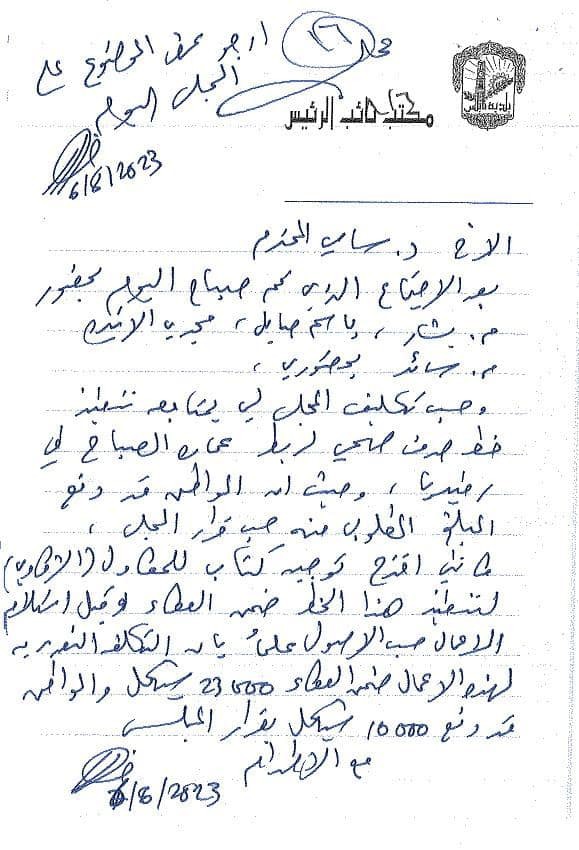 ارجو عرض الموضوع على
المجلس اليوم
6/8/2023
١٦
بلدية نابلس
مكتب نائب الرئيس
الاخ د. سامي المحترم
بعد الاجتماع الذي تم صباح اليوم بحضور
م. بشار ، باسم صايل ، مجدي
م. سائد بحضوري ،
وحسب تكليف المجلس لي بمتابعة تنفيذ
خط صرف صحي لربط عمارة الصباح في
رفيديا ، وحيث ان المواطن قد دفع
المبلغ المطلوب منه حسب قرار المجلس ،
فانني اقترح توجيه كتاب للمقاول
لتنفيذ هذا الخط ضمن العطاء وقبل استلام
الاعمال حسب الاصول علماً بان التكلفة التقديرية
لهذه الاعمال ضمن العطاء 23000 شيكل والمواطن
قد دفع 10000 شيكل بقرار المجلس
مع الاحترام
6/8/2023